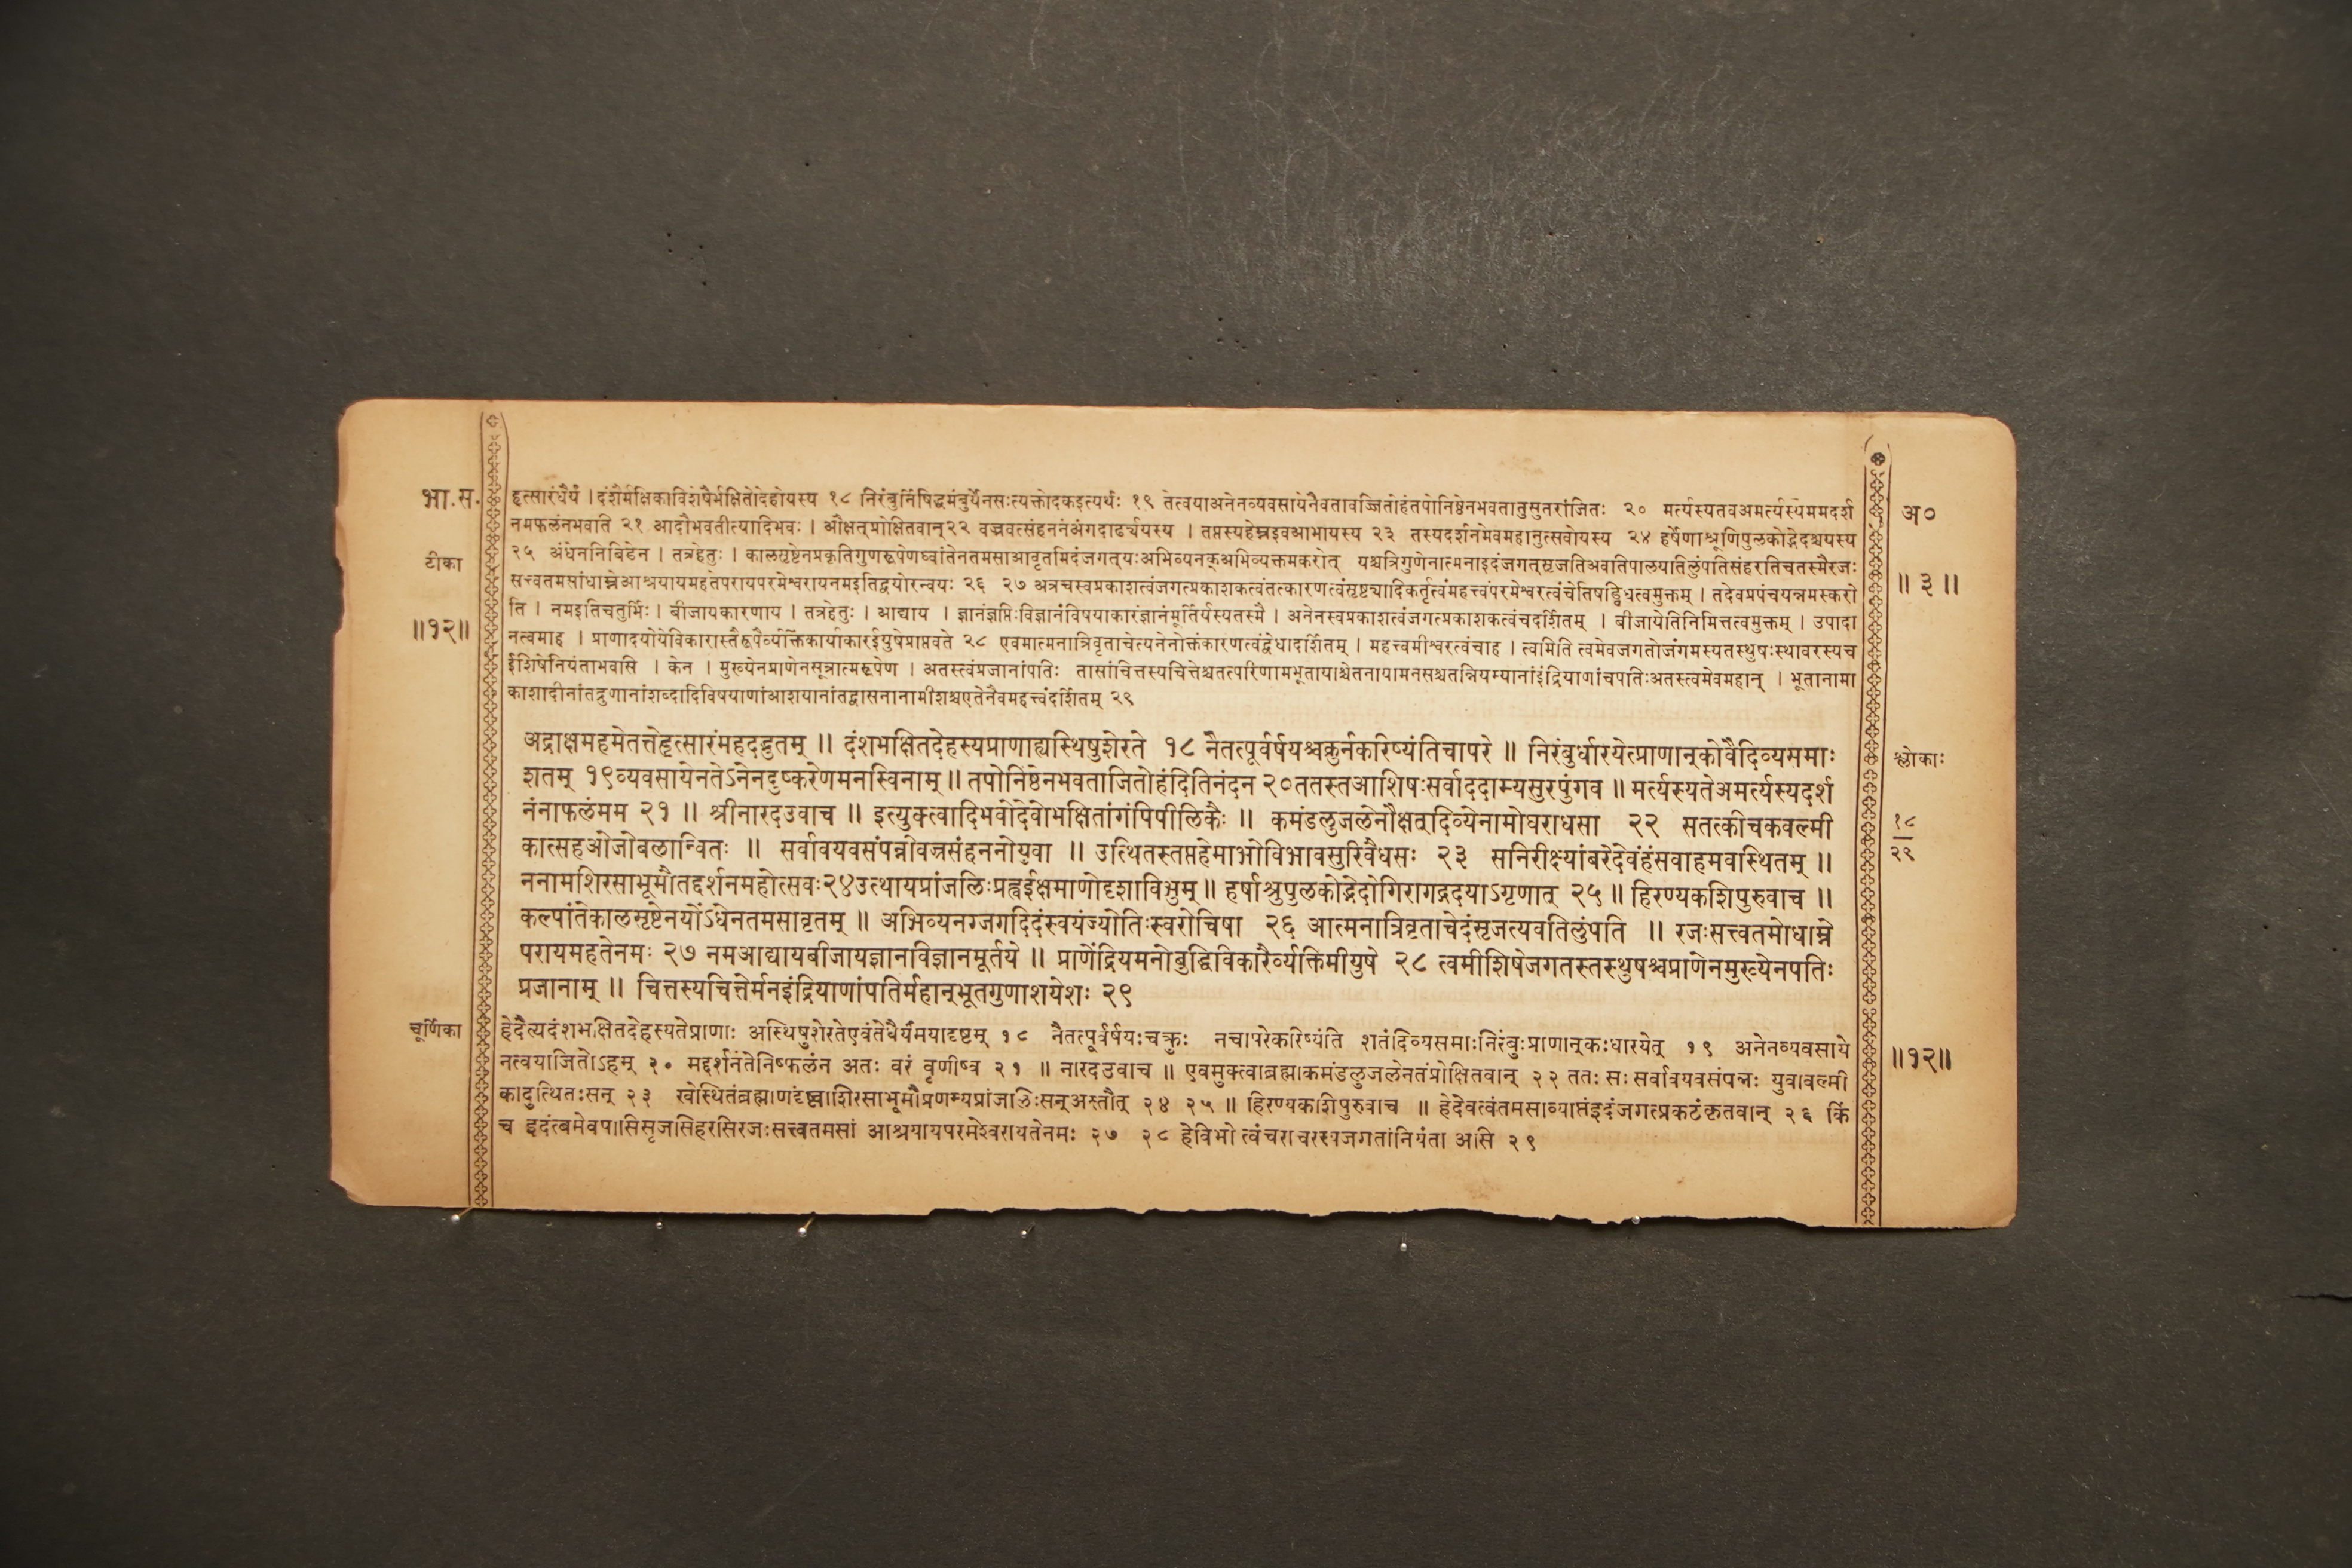 भा.स.
टीका
॥१२॥
हृत्सारंधैर्यं । दंशैर्मक्षिकाविशेषैर्भक्षितोदेहोयस्य १८ निरंबुर्निषिद्धमंबुर्येनसःत्यक्तोदकइत्यर्थः १९ तेत्वयाअनेनव्यवसायेनैवतावज्जितोहंतपोनिष्ठेनभवतातुसुतरांजितः २० मर्त्यस्यतवअमर्त्यस्यममदर्श
नमफलंनभवति २१ आदौभवतीत्यादिभवः । औक्षत्प्रोक्षितवान्२२ वज्रवत्संहननंअंगदार्ढ्यंयस्य । तप्तस्यहेम्नइवआभायस्य २३ तस्यदर्शनमेवमहानुत्सवोयस्य २४ हर्षेणाश्रूणिपुलकोद्भेदश्चयस्य
२५ अंधेननिबिडेन । तत्रहेतुः । कालसृष्टेनप्रकृतिगुणरूपेणध्वांतेनतमसाआवृतमिदंजगत्यःअभिव्यनक्अभिव्यक्तमकरोत् यश्चत्रिगुणेनात्मनाइदंजगत्सृजतिअवतिपालयतिलुंपतिसंहरतिचतस्मैरजः
सत्त्वतमसांधाम्नेआश्रयायमहतेपरायपरमेश्वरायनमइतिद्वयोरन्वयः २६ २७ अत्रचस्वप्रकाशत्वंजगत्प्रकाशकत्वंतत्कारणत्वंसृष्ट्यादिकर्तृत्वंमहत्त्वंपरमेश्वरत्वंचेतिषड्विधत्वमुक्तम् । तदेवप्रपंचयन्नमस्करो
ति । नमइतिचतुर्भिः । बीजायकारणाय । तत्रहेतुः । आद्याय । ज्ञानंज्ञप्तिःविज्ञानंविषयाकारंज्ञानंमूर्तिर्यस्यतस्मै । अनेनस्वप्रकाशत्वंजगत्प्रकाशकत्वंचदर्शितम् । बीजायेतिनिमित्तत्वमुक्तम् । उपादा
नत्वमाह । प्राणादयोयेविकारास्तैरूपैर्व्यक्तिंकार्याकारईयुषेप्राप्तवते २८ एवमात्मनात्रिवृताचेत्यनेनोक्तंकारणत्वंद्वेधादर्शितम् । महत्त्वमीश्वरत्वंचाह । त्वमिति त्वमेवजगतोजंगमस्यतस्थुषःस्थावरस्यच
ईशिषेनियंताभवसि । केन । मुख्येनप्राणेनसूत्रात्मरूपेण । अतस्त्वंप्रजानांपतिः तासांचित्तस्यचित्तेश्चतत्परिणामभूतायाश्चेतनायामनसश्चतन्नियम्यानांइंद्रियाणांचपतिःअतस्त्वमेवमहान् । भूतानामा
काशादीनांतद्गुणानांशब्दादिविषयाणांआशयानांतद्वासनानामीशश्चएतेनैवमहत्त्वंदर्शितम् २९
अद्राक्षमहमेतत्तेहृत्सारंमहदद्भुतम् ॥ दंशभक्षितदेहस्यप्राणाह्यस्थिषुशेरते १८ नैतत्पूर्वर्षयश्चक्रुर्नकरिष्यंतिचापरे ॥ निरंबुर्धारयेत्प्राणान्कोवैदिव्यसमाः
शतम् १९व्यवसायेनतेऽनेनदुष्करेणमनस्विनाम्॥ तपोनिष्ठेनभवताजितोहंदितिनंदन २०ततस्तआशिषःसर्वाददाम्यसुरपुंगव ॥ मर्त्यस्यतेअमर्त्यस्यदर्श
नंनाफलंमम २१ ॥ श्रीनारदउवाच ॥ इत्युक्त्वादिभवोदेवोभक्षितांगंपिपीलिकैः ॥ कमंडलुजलेनौक्षत्दिव्येनामोघराधसा २२ सतत्कीचकवल्मी
कात्सहओजोबलान्वितः ॥ सर्वावयवसंपन्नोवज्रसंहननोयुवा ॥ उत्थितस्तप्तहेमाभोविभावसुरिवैधसः २३ सनिरीक्ष्यांबरेदेवंहंसवाहमवास्थितम् ॥
ननामशिरसाभूमौतद्दर्शनमहोत्सवः२४उत्थायप्रांजलिःप्रह्वईक्षमाणोदृशाविभुम्॥ हर्षाश्रुपुलकोद्भेदोगिरागद्गदयाऽगृणात् २५ ॥ हिरण्यकशिपुरुवाच ॥
कल्पांतेकालसृष्टेनयोंऽधेनतमसावृतम् ॥ अभिव्यनग्जगदिदंस्वयंज्योतिःस्वरोचिषा २६ आत्मनात्रिवृताचेदंसृजत्यवतिलुंपति ॥ रजःसत्त्वतमोधाम्ने
परायमहतेनमः २७ नमआद्यायबीजायज्ञानविज्ञानमूर्तये ॥ प्राणेंद्रियमनोबुद्धिविकारैर्व्यक्तिमीयुषे २८ त्वमीशिषेजगतस्तस्थुषश्चप्राणेनमुख्येनपतिः
प्रजानाम् ॥ चित्तस्यचित्तेर्मनइंद्रियाणांपतिर्महान्भूतगुणाशयेशः २९
चूर्णिका
हेदैत्यदंशभक्षितदेहस्यतेप्राणाः अस्थिषुशेरतेएवंतेधैर्यंमयादृष्टम् १८ नैतत्पूर्वर्षयःचक्रुः नचापरेकरिष्यंति शतंदिव्यसमाःनिरंबुःप्राणान्कःधारयेत् १९ अनेनव्यवसाये
नत्वयाजितोऽहम् २० मद्दर्शनंतेनिष्फलंन अतः वरं वृणीष्व २१ ॥ नारदउवाच ॥ एवमुक्त्वाब्रह्माकमंडलुजलेनतंप्रोक्षितवान् २२ ततः सः सर्वावयवसंपन्नः युवावल्मी
कादुत्थितःसन् २३ खेस्थितंब्रह्माणंदृष्ट्वाशिरसाभूमौप्रणम्यप्रांजलिःसन्अस्तौत् २४ २५ ॥ हिरण्यकशिपुरुवाच ॥ हेदेवत्वंतमसाव्याप्तंइदंजगत्प्रकटंकृतवान् २६ किं
च इदंत्वमेवपासिसृजसिहरसिरजःसत्त्वतमसां आश्रयायपरमेश्वरायतेनमः २७ २८ हेविभो त्वंचराचरस्यजगतांनियंता असि २९
अ०
॥ ३ ॥
श्लोकाः
१८
२९
॥१२॥